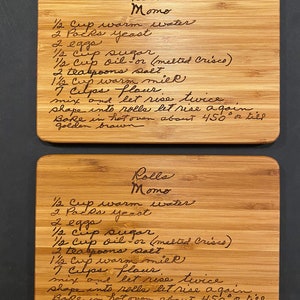 Momo
½ cup warm water
2 Packs yeast
2 eggs
½ cup sugar
½ cup oil-or (melted Crisco)
2 teaspoons salt
1½ cup warm milk
7 cups flour
mix and let rise twice
shape into rolls let rise again
Bake in hot oven about 450° or till
golden brown
Rolls
Momo
½ cup warm water
2 Packs yeast
2 eggs
½ cup sugar
½ cup oil-or (melted Crisco)
2 teaspoons salt
1½ cup warm milk
7 cups flour
mix and let rise twice
shape into rolls let rise again
Bake in hot oven about 450° or till